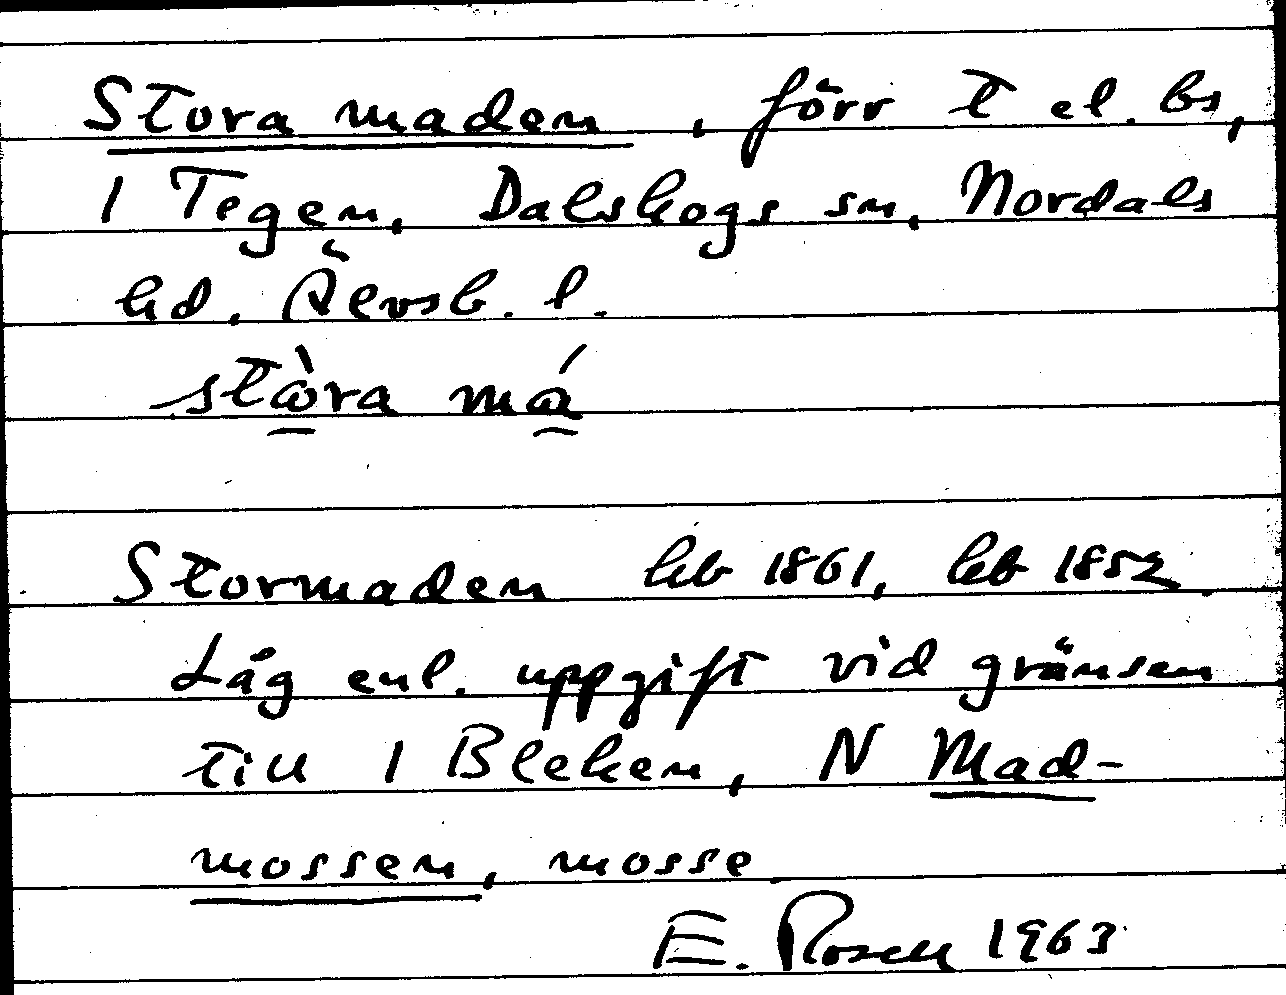 Stora maden, förr t el. bs,
1 Tegen, Dalskogs sn, Nordals
hd. Älvsb. l.
stòra má
Stormaden hb 1861, hb 1852
Låg enl. uppgift vid gränsen
till 1 Bleken, N Mad-
mossen, mosse
E. Rosell 1963